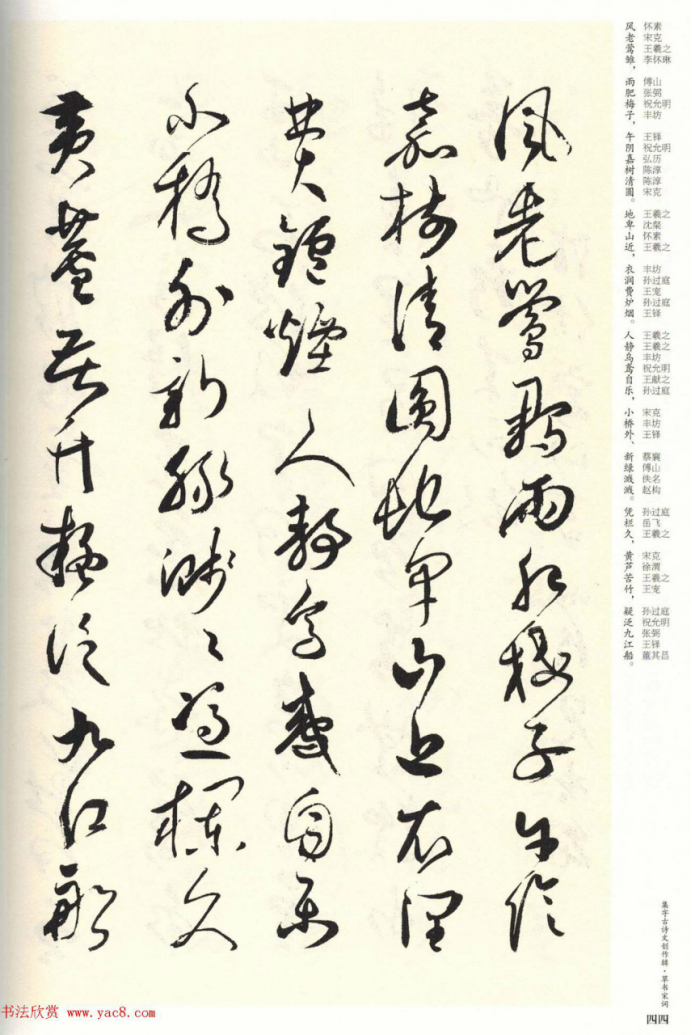 風老鶯雛雨肥梅子午陰
嘉樹清圓地卑山近衣潤
費鑪煙人靜烏鳶自樂
小橋外新綠濺〻憑欄久
黃蘆苦竹疑泛九江船
风老莺雏，雨肥梅子，午阴嘉树清圆。地卑山近，衣润费炉烟。人静乌鸢自乐，小桥外、新绿溅溅。凭栏久，黄芦苦竹，疑泛九江船。
怀素
宋克
王羲之
李怀琳
傅山
张弼
祝允明
丰坊
王铎
祝允明
弘历
陈淳
陈淳
宋克
王羲之
沈粲
怀素
王羲之
丰坊
孙过庭
王宠
孙过庭
王铎
王羲之
王羲之
丰坊
祝允明
王献之
孙过庭
宋克
丰坊
王铎
蔡襄
傅山
佚名
赵构
孙过庭
岳飞
王羲之
宋克
徐渭
王羲之
王宠
孙过庭
祝允明
张弼
王铎
董其昌
集字古诗文创作辑·草书宋词
四四
书法欣赏 www.yac8.com